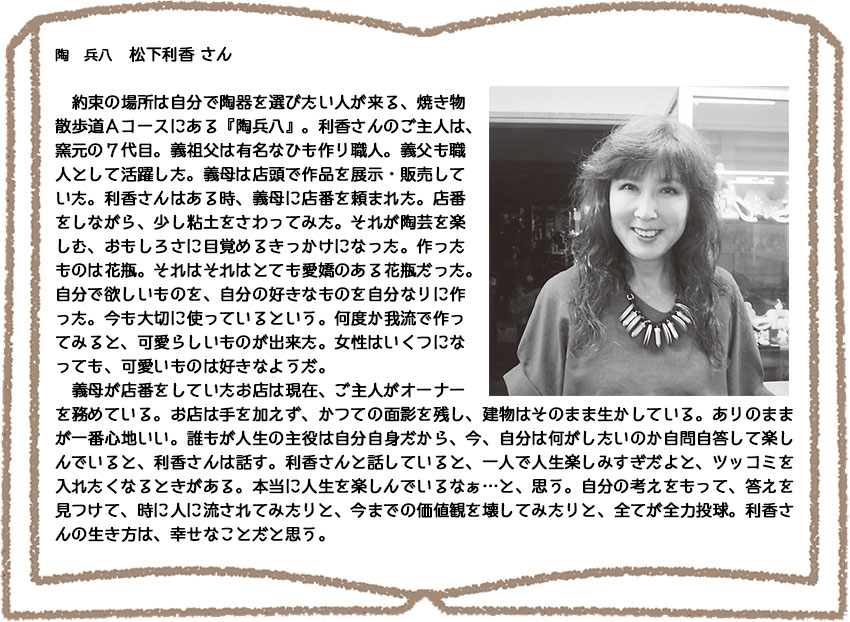 陶　兵八　松下利香 さん
　約束の場所は自分で陶器を選びたい人が来る、焼き物
散歩道Ａコースにある『陶兵八』。利香さんのご主人は、
窯元の７代目。義祖父は有名なひも作り職人。義父も職
人として活躍した。義母は店頭で作品を展示・販売して
いた。利香さんはある時、義母に店番を頼まれた。店番
をしながら、少し粘土をさわってみた。それが陶芸を楽
しむ、おもしろさに目覚めるきっかけになった。作った
ものは花瓶。それはそれはとても愛嬌のある花瓶だった。
自分で欲しいものを、自分の好きなものを自分なりに作
った。今も大切に使っているという。何度か我流で作っ
てみると、可愛らしいものが出来た。女性はいくつにな
っても、可愛いものは好きなようだ。
　義母が店番をしていたお店は現在、ご主人がオーナー
を務めている。お店は手を加えず、かつての面影を残し、建物はそのまま生かしている。ありのまま
が一番心地いい。誰もが人生の主役は自分自身だから、今、自分は何がしたいのか自問自答して楽し
んでいると、利香さんは話す。利香さんと話していると、一人で人生楽しみすぎだよと、ツッコミを
入れたくなるときがある。本当に人生を楽しんでいるなぁ…と、思う。自分の考えをもって、答えを
見つけて、時に人に流されてみたりと、今までの価値観を壊してみたりと、全てが全力投球。利香さ
んの生き方は、幸せなことだと思う。